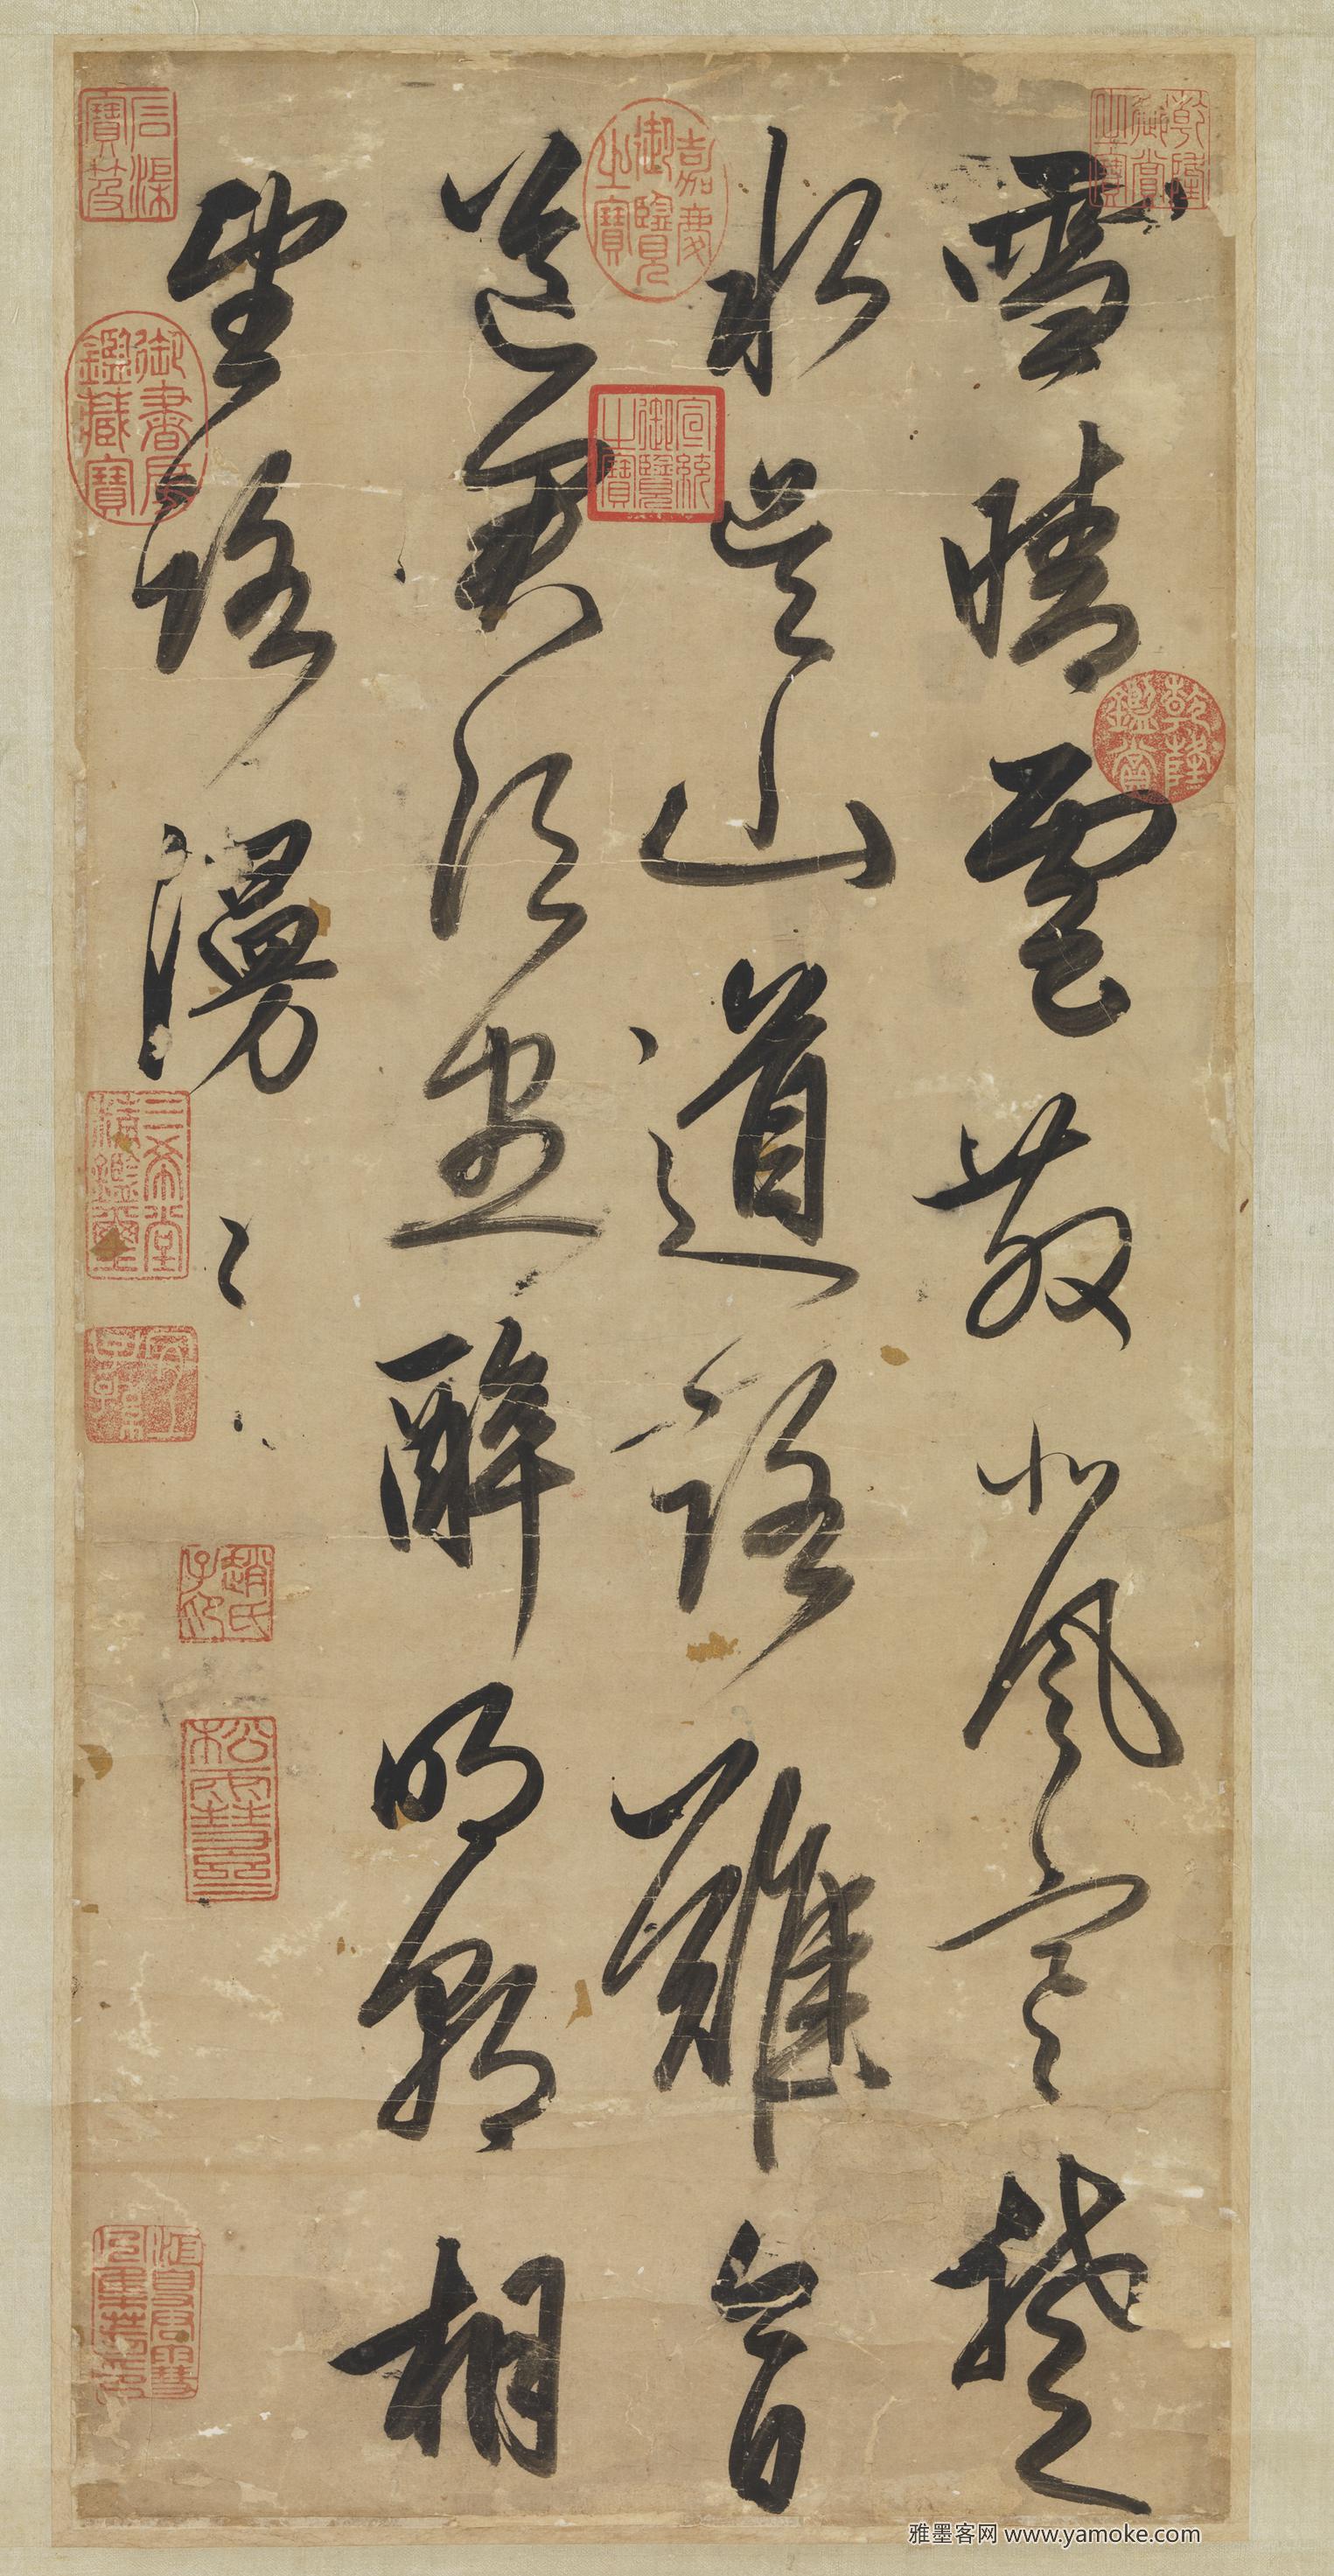 雪晴雲散北風寒楚
水吴山道路難今日
送君須盡醉明朝相
望路漫〻
乾隆御賞之寶
乾隆鑑賞
嘉慶御覽之寶
宣統御覽之寶
石渠寶笈
御書房鑑藏寶
三希堂精鑑璽
宜子孫
趙氏子昂
松雪齋
雅墨客网 www.yamoke.com